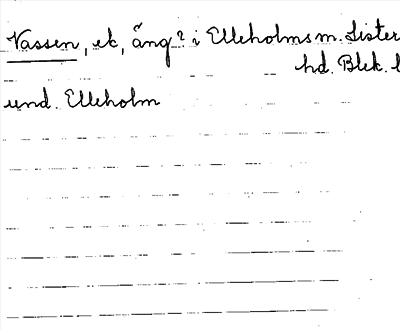 Vassen, ek, äng? i Elleholms m. Lister
hd. Blek. l
und. Elleholm